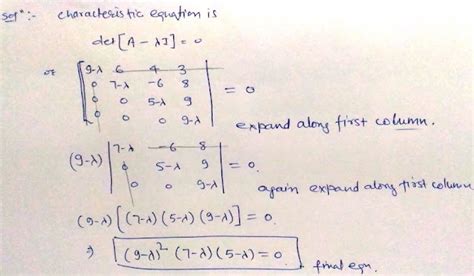 Sol*:- characteristic equation is
det[A - λI] = 0
or
9-λ 6 4 3
0 7-λ -6 8
0 0 5-λ 9
0 0 0 9-λ
= 0
expand along first column.
(9-λ) | 7-λ -6 8 |
0 5-λ 9
0 0 9-λ
= 0.
again expand along first column
(9-λ) [(7-λ)(5-λ)(9-λ)] = 0.
⇒ (9-λ)² (7-λ)(5-λ) = 0
final eqn.